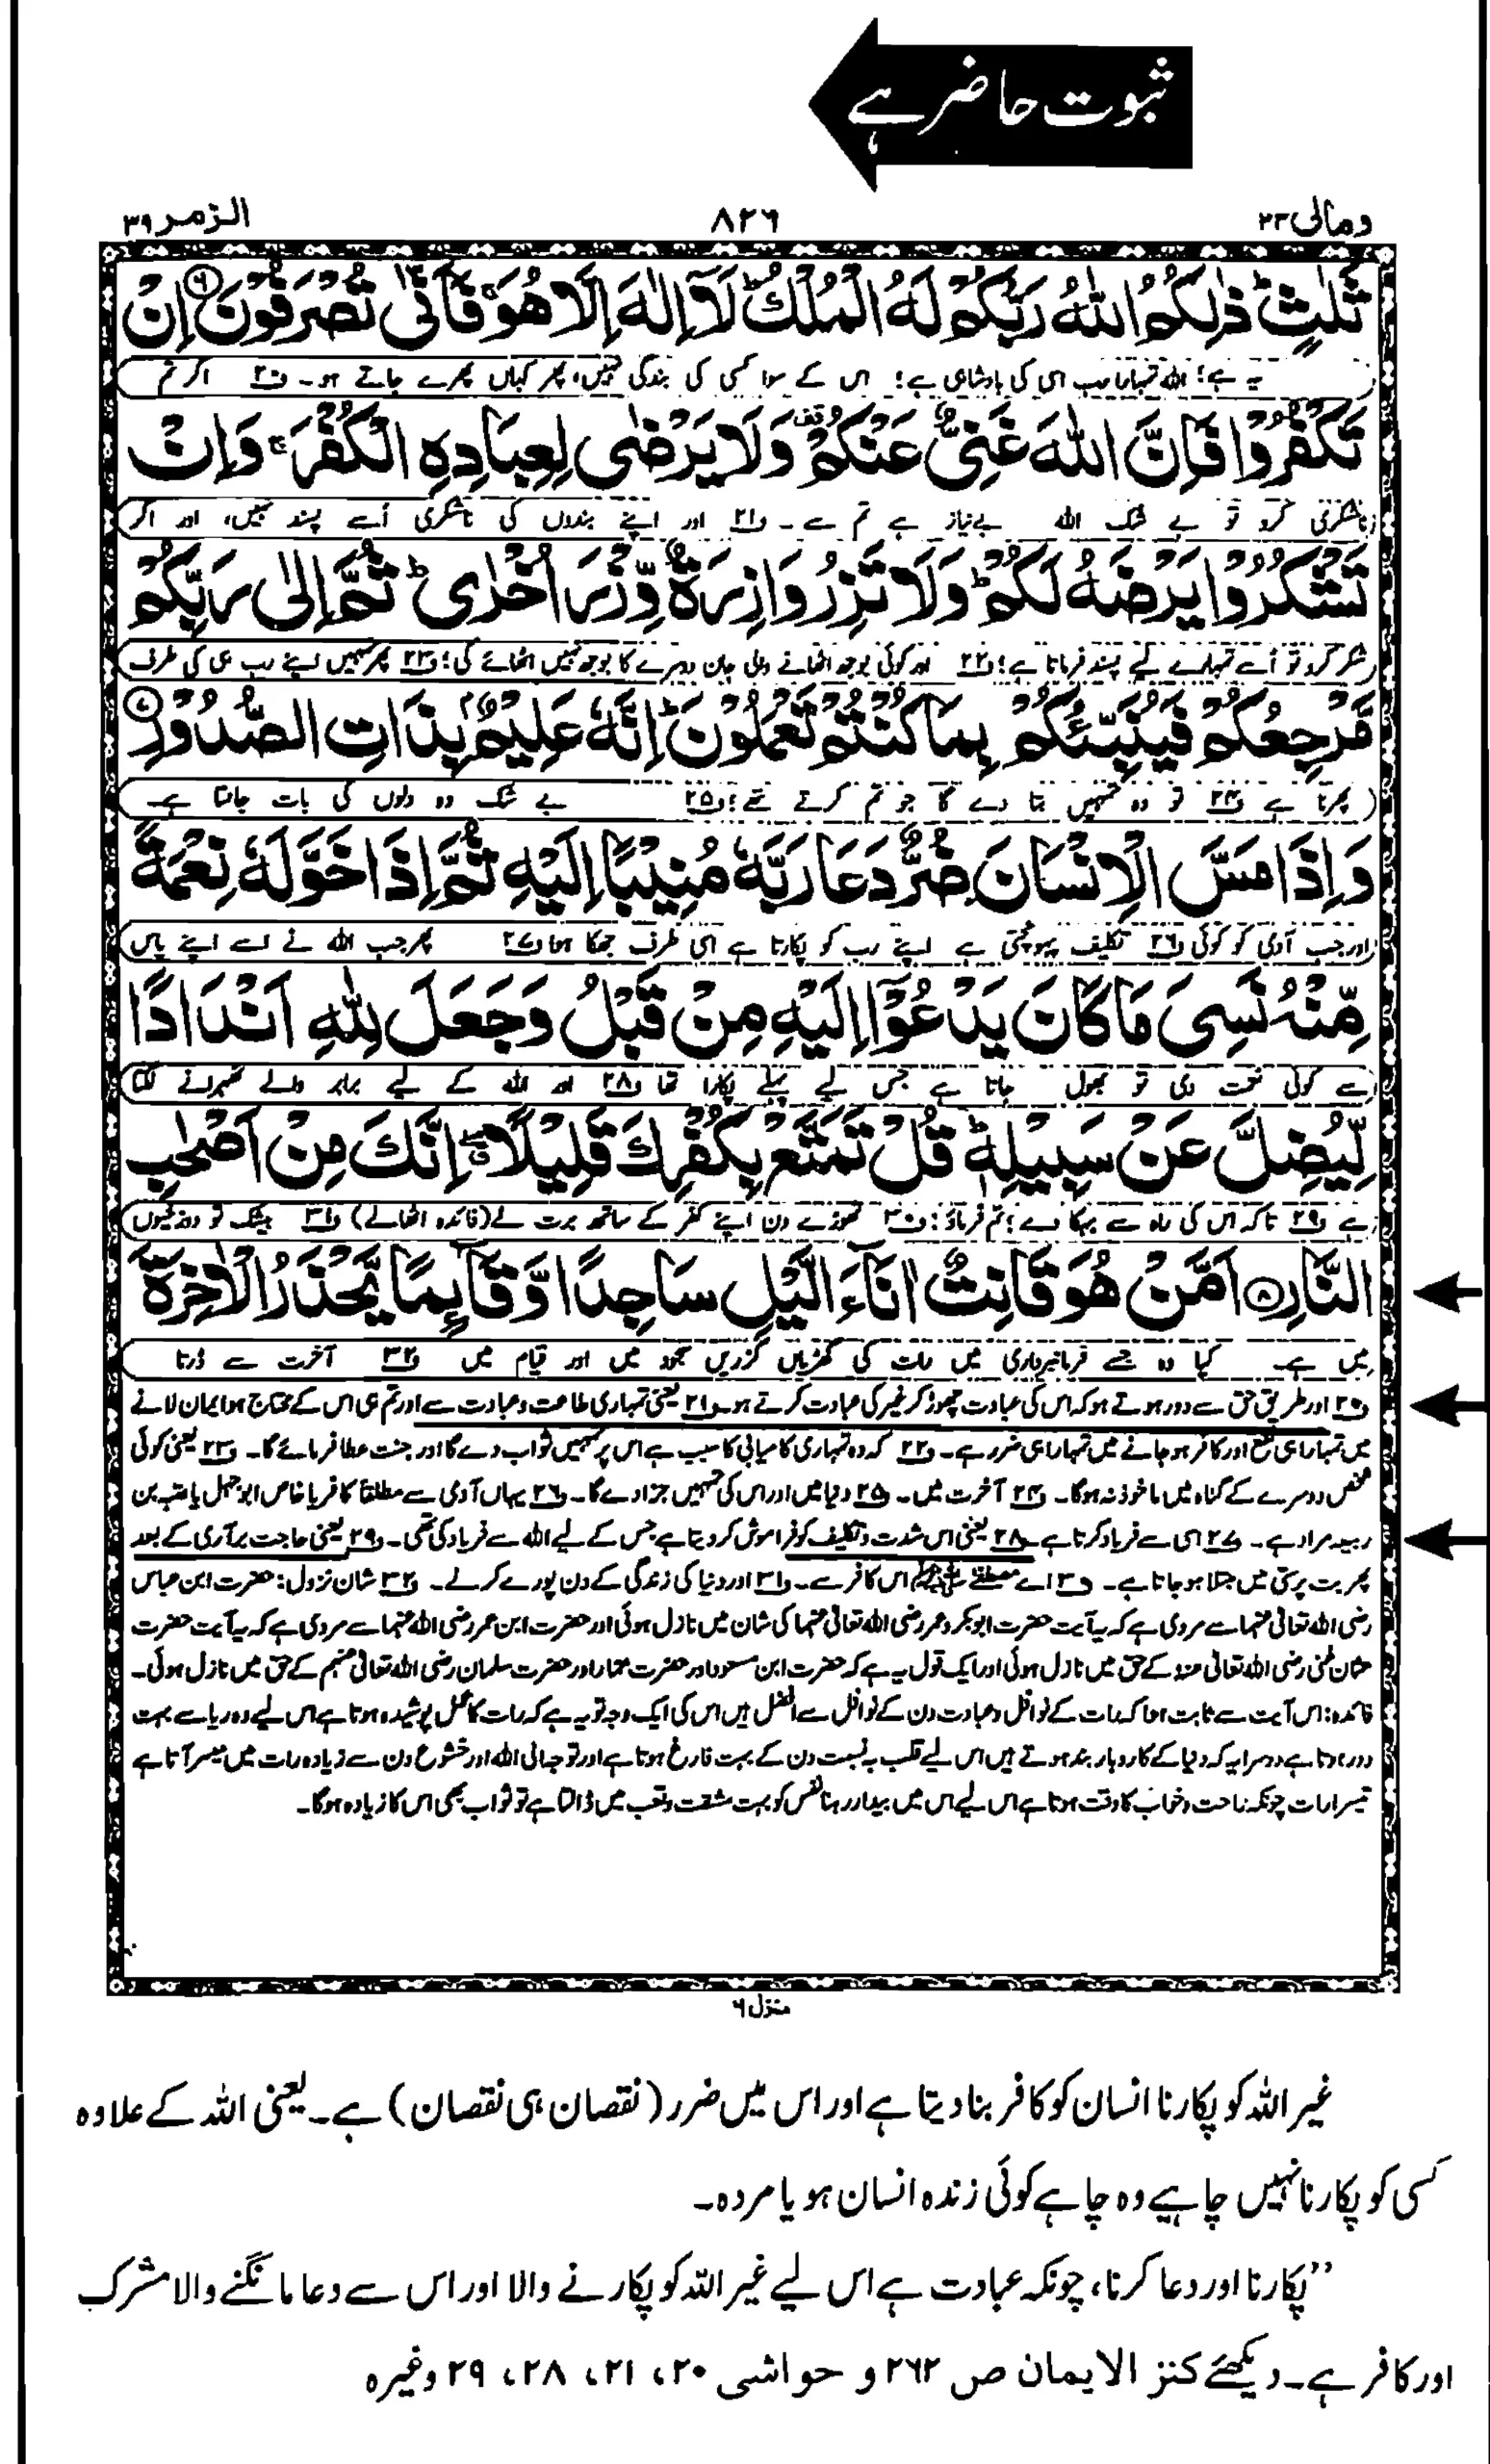 ثبوت حاضر ہے
ومالی ۲۳
۸۲۶
الزمر ۳۹
ثَلٰثٍ ؕ ذٰلِكُمُ اللّٰهُ رَبُّكُمْ لَهُ الْمُلْكُ ؕ لَاۤ اِلٰهَ اِلَّا هُوَ ۚ فَاَنّٰى تُصْرَفُوْنَ ﴿۶﴾ اِنْ
یہ ہے؛ اللہ تمہارا رب اسی کی بادشاہی ہے؛ اس کے سوا کسی کی بندگی نہیں، پھر کہاں پھرے جاتے ہو۔ و۲۰ اگر تم
تَكْفُرُوْا فَاِنَّ اللّٰهَ غَنِیٌّ عَنْكُمْ ۫ وَ لَا یَرْضٰى لِعِبَادِهِ الْكُفْرَ ۚ وَ اِنْ
ناشکری کرو تو بے شک اللہ بےنیاز ہے تم سے۔ و۲۱ اور اپنے بندوں کی ناشکری اُسے پسند نہیں، اور اگر
تَشْكُرُوْا یَرْضَهُ لَكُمْ ؕ وَ لَا تَزِرُ وَازِرَةٌ وِّزْرَ اُخْرٰى ؕ ثُمَّ اِلٰى رَبِّكُمْ
شکر کرو تو اُسے تمہارے لیے پسند فرماتا ہے؛ و۲۲ اور کوئی بوجھ اٹھانے والی جان دوسرے کا بوجھ نہیں اٹھائے گی؛ و۲۳ پھر تمہیں اپنے رب ہی کی طرف
مَّرْجِعُكُمْ فَیُنَبِّئُكُمْ بِمَا كُنْتُمْ تَعْمَلُوْنَ ؕ اِنَّهٗ عَلِیْمٌۢ بِذَاتِ الصُّدُوْرِ ﴿۷﴾
پھرنا ہے و۲۴ تو وہ تمہیں بتا دے گا جو تم کرتے تھے؛ و۲۵ بے شک وہ دلوں کی بات جانتا ہے۔
وَ اِذَا مَسَّ الْاِنْسَانَ ضُرٌّ دَعَا رَبَّهٗ مُنِیْبًا اِلَیْهِ ثُمَّ اِذَا خَوَّلَهٗ نِعْمَةً
اور جب آدمی کو کوئی و۲۶ تکلیف پہونچتی ہے اپنے رب کو پکارتا ہے اسی طرف جھکا ہوا و۲۷ پھر جب اللہ نے اسے اپنے پاس
مِّنْهُ نَسِیَ مَا كَانَ یَدْعُوْۤا اِلَیْهِ مِنْ قَبْلُ وَ جَعَلَ لِلّٰهِ اَنْدَادًا
سے کوئی نعمت دی تو بھول جاتا ہے جس لیے پہلے پکارا تھا و۲۸ اور اللہ کے لیے برابر والے ٹھہرانے لگتا
لِّیُضِلَّ عَنْ سَبِیْلِهٖ ؕ قُلْ تَمَتَّعْ بِكُفْرِكَ قَلِیْلًا ۖ اِنَّكَ مِنْ اَصْحٰبِ
ہے و۲۹ تاکہ اس کی راہ سے بہکا دے؛ تم فرماؤ؛ و۳۰ تھوڑے دن اپنے کفر کے ساتھ برت لے (فائدہ اٹھالے) و۳۱ بیشک تو دوزخیوں
النَّارِ ﴿۸﴾ اَمَّنْ هُوَ قَانِتٌ اٰنَآءَ الَّیْلِ سَاجِدًا وَّ قَآىِٕمًا یَّحْذَرُ الْاٰخِرَةَ
میں ہے۔ کیا وہ جسے فرمانبرداری میں رات کی گھڑیاں گزریں سجود میں اور قیام میں و۳۲ آخرت سے ڈرتا
و۲۰ اور طریق حق سے دور ہوتے ہو کہ اس کی عبادت چھوڑ کر غیر کی عبادت کرتے ہو۔ و۲۱ یعنی تمہاری طاعت و عبادت سے اور تم ہی اس کے محتاج ہو ایمان لانے
میں تمہارا ہی نفع اور کافر ہو جانے میں تمہارا ہی ضرر ہے۔ و۲۲ کہ وہ تمہاری کامیابی کا سبب ہے اس پر تمہیں ثواب دے گا اور جنت عطا فرمائے گا۔ و۲۳ یعنی کوئی
شخص دوسرے کے گناہ میں ماخوذ نہ ہوگا۔ و۲۴ آخرت میں۔ و۲۵ دنیا میں اور اس کی تمہیں جزا دے گا۔ و۲۶ یہاں آدمی سے مطلقاً کافر یا خاص ابوجہل یا عتبہ بن
ربیعہ مراد ہے۔ و۲۷ اسی سے فریاد کرتا ہے۔ و۲۸ یعنی اس شدت و تکلیف کو فراموش کر دیتا ہے جس کے لیے اللہ سے فریاد کی تھی۔ و۲۹ یعنی حاجت برآری کے بعد
پھر بت پرستی میں مبتلا ہو جاتا ہے۔ و۳۰ اے مصطفےٰ ﷺ اس کافر سے۔ و۳۱ اور دنیا کی زندگی کے دن پورے کر لے۔ و۳۲ شان نزول: حضرت ابن عباس
رضی اللہ تعالیٰ عنہما سے مروی ہے کہ یہ آیت حضرت ابوبکر و عمر رضی اللہ تعالیٰ عنہما کی شان میں نازل ہوئی اور حضرت ابن عمر رضی اللہ عنہما سے مروی ہے کہ یہ آیت حضرت
عثمان غنی رضی اللہ تعالیٰ عنہ کے حق میں نازل ہوئی اور ایک قول یہ ہے کہ حضرت ابن مسعود اور حضرت عمار اور حضرت سلمان رضی اللہ تعالیٰ عنہم کے حق میں نازل ہوئی۔
فائدہ: اس آیت سے ثابت ہوا کہ رات کے نوافل و عبادت دن کے نوافل سے افضل ہیں اس کی ایک وجہ تو یہ ہے کہ رات کا عمل پوشیدہ ہوتا ہے اس لیے وہ ریا سے بہت
دور ہوتا ہے دوسرا یہ کہ دنیا کے کاروبار بند ہوتے ہیں اس لیے قلب بہ نسبت دن کے بہت فارغ ہوتا ہے اور توجہ الی اللہ اور خشوع دن سے زیادہ رات میں میسر آتا ہے
تیسرا رات چونکہ راحت و خواب کا وقت ہوتا ہے اس لیے اس میں بیدار رہنا نفس کو بہت مشقت و تعب میں ڈالتا ہے تو ثواب بھی اس کا زیادہ ہوگا۔
منزل ۶
غیر اللہ کو پکارنا انسان کو کافر بنا دیتا ہے اور اس میں ضرر (نقصان ہی نقصان) ہے۔ یعنی اللہ کے علاوہ
کسی کو پکارنا نہیں چاہیے وہ چاہے کوئی زندہ انسان ہو یا مردہ۔
”پکارنا اور دعا کرنا، چونکہ عبادت ہے اس لیے غیر اللہ کو پکارنے والا اور اس سے دعا مانگنے والا مشرک
اور کافر ہے۔ دیکھئے کنز الایمان ص ۲۶۲ و حواشی ۲۰، ۲۱، ۲۸، ۲۹ وغیرہ